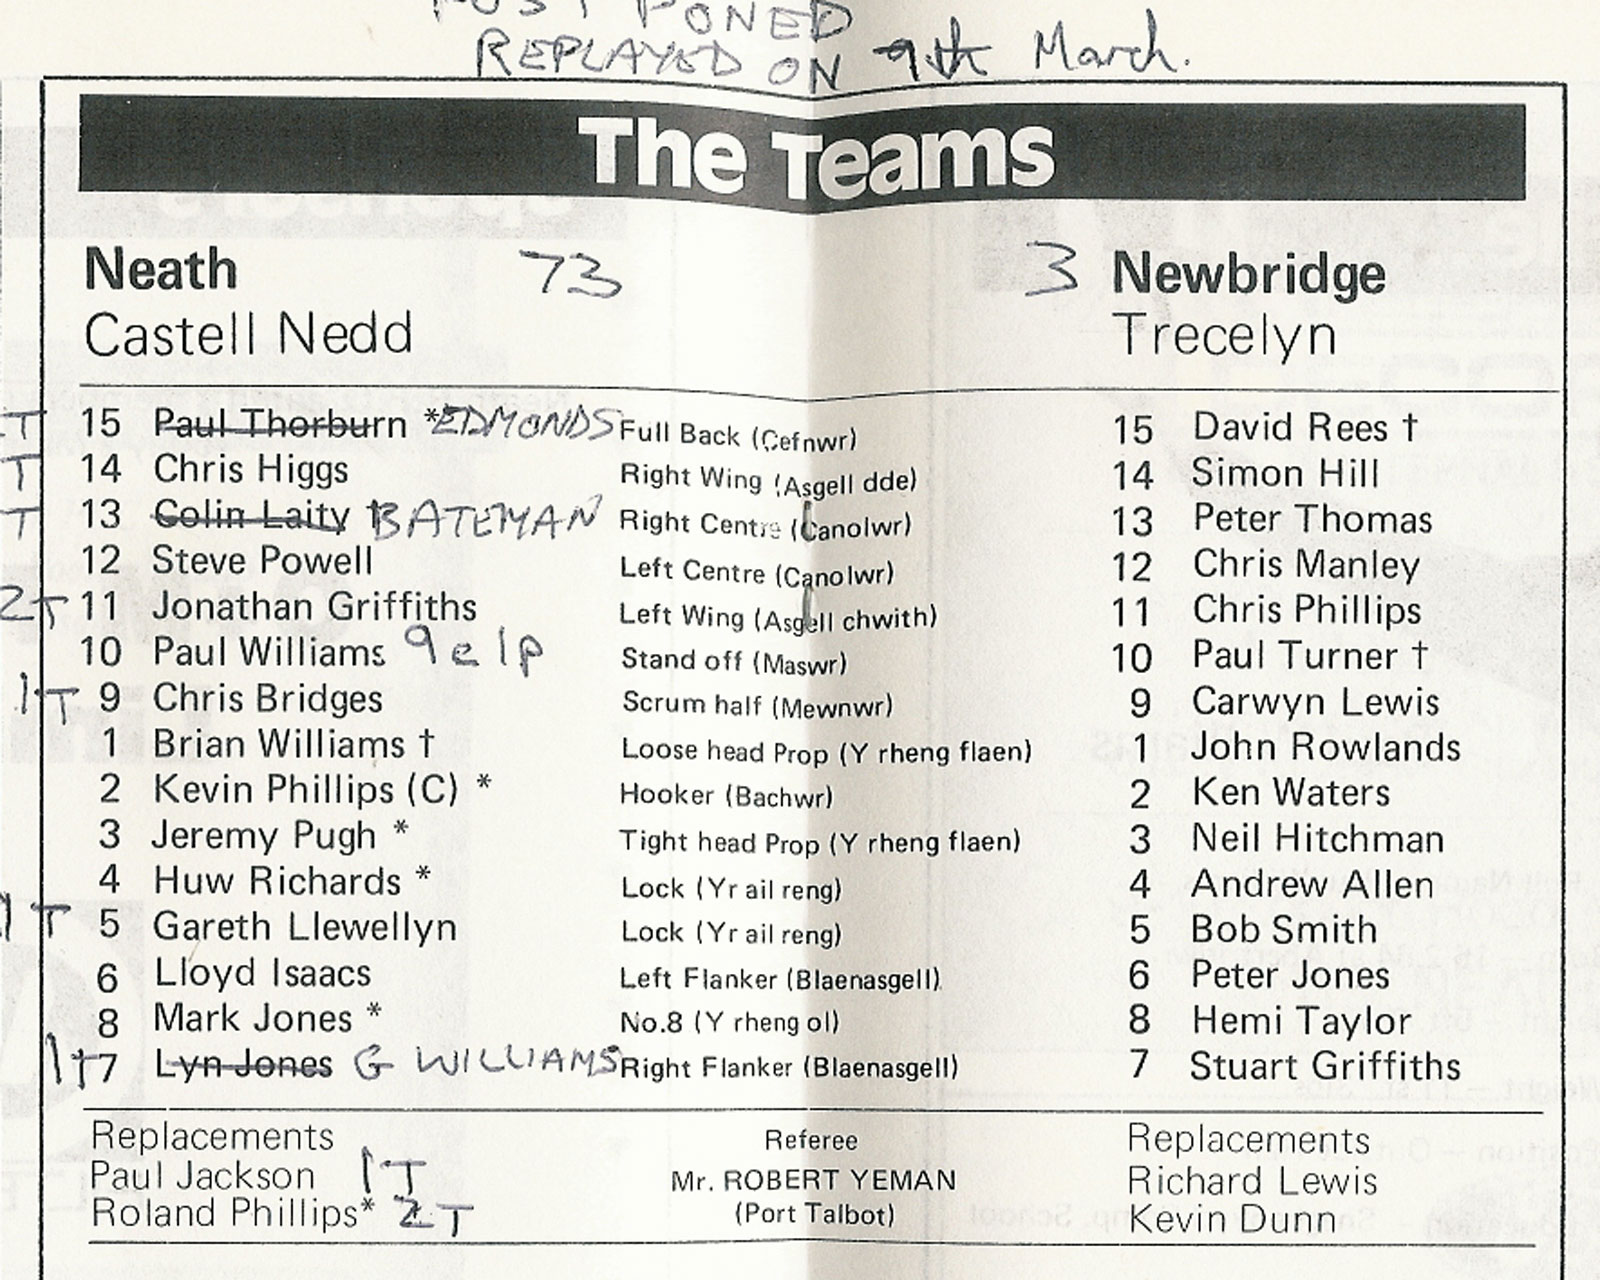 POSTPONED
REPLAYED ON 9th March.
The Teams
Neath 73 3 Newbridge
Castell Nedd Trecelyn
T 15 Paul Thorburn * EDMONDS Full Back (Cefnwr) 15 David Rees †
T 14 Chris Higgs Right Wing (Asgell dde) 14 Simon Hill
T 13 Colin Laity † BATEMAN Right Centre (Canolwr) 13 Peter Thomas
12 Steve Powell Left Centre (Canolwr) 12 Chris Manley
2T 11 Jonathan Griffiths Left Wing (Asgell chwith) 11 Chris Phillips
10 Paul Williams 9c 1p Stand off (Maswr) 10 Paul Turner †
1T 9 Chris Bridges Scrum half (Mewnwr) 9 Carwyn Lewis
1 Brian Williams † Loose head Prop (Y rheng flaen) 1 John Rowlands
2 Kevin Phillips (C) * Hooker (Bachwr) 2 Ken Waters
3 Jeremy Pugh * Tight head Prop (Y rheng flaen) 3 Neil Hitchman
4 Huw Richards * Lock (Yr ail reng) 4 Andrew Allen
1T 5 Gareth Llewellyn Lock (Yr ail reng) 5 Bob Smith
6 Lloyd Isaacs Left Flanker (Blaenasgell) 6 Peter Jones
8 Mark Jones * No.8 (Y rheng ol) 8 Hemi Taylor
1T 7 Lyn Jones G WILLIAMS Right Flanker (Blaenasgell) 7 Stuart Griffiths
Replacements Referee Replacements
Paul Jackson 1T Mr. ROBERT YEMAN Richard Lewis
Roland Phillips* 2T (Port Talbot) Kevin Dunn